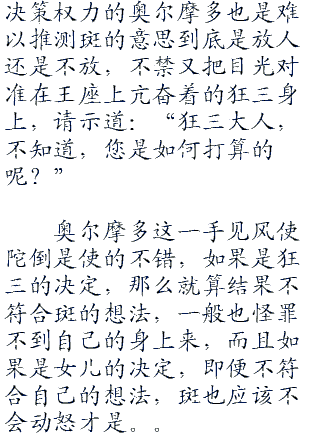 决策权力的奥尔摩多也是难
以推测斑的意思到底是放人
还是不放，不禁又把目光对
准在王座上亢奋着的狂三身
上，请示道：“狂三大人，
不知道，您是如何打算的
呢？”
奥尔摩多这一手见风使
陀倒是使的不错，如果是狂
三的决定，那么就算结果不
符合斑的想法，一般也怪罪
不到自己的身上来，而且如
果是女儿的决定，即便不符
合自己的想法，斑也应该不
会动怒才是。。